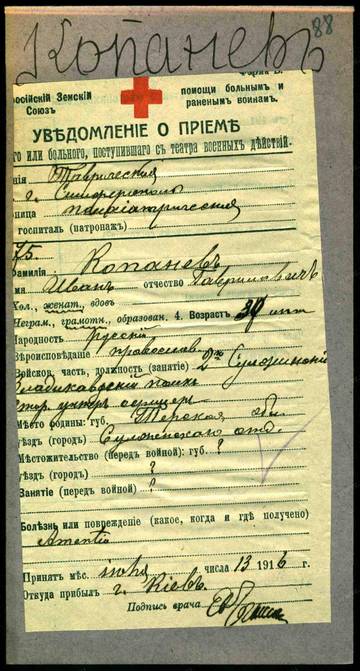 88
Копаневъ
Форма В.
россійскій Земскій
Союзъ
помощи больнымъ и
раненымъ воинамъ.
УВѢДОМЛЕНІЕ О ПРІЕМѢ
го или больного, поступившаго съ театра военныхъ дѣйствій.
нія Таврическая
г. Симферополь
ница психіатрическая
госпиталь (патронажъ)
75.
Фамилія Копаневъ
мя Иванъ отчество Гавриловичъ
Хол., женат., вдовъ
Неграм., грамотн., образован. 4. Возрастъ лѣтъ
Народность русскій
Вѣроисповѣданіе православ.
Войсков. часть, должность (занятіе) 2й Сунженскій
Владикавказскій полкъ
стар. унтеръ офицеръ
Мѣсто родины: губ. Терская обл.
ѣздъ (городъ) Сунженскаго отд.
Мѣстожительство (передъ войной): губ. ?
ѣздъ (городъ) ?
Занятіе (передъ войной) ?
Болѣзнь или поврежденіе (какое, когда и гдѣ получено)
Amentia
Принятъ мѣс. іюня числа 13 1916 г.
Откуда прибылъ г. Кіевъ
Подпись врача